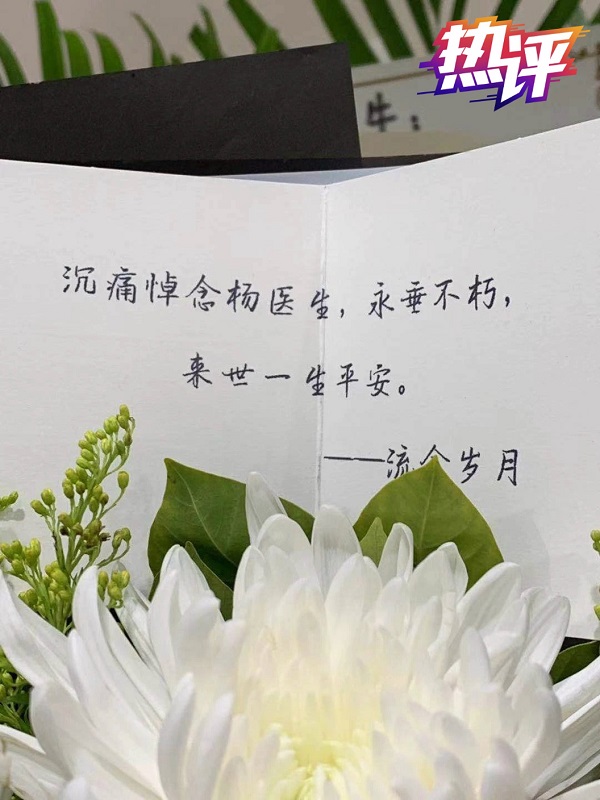 热评
牛：
沉痛悼念杨医生，永垂不朽，
来世一生平安。
——流金岁月